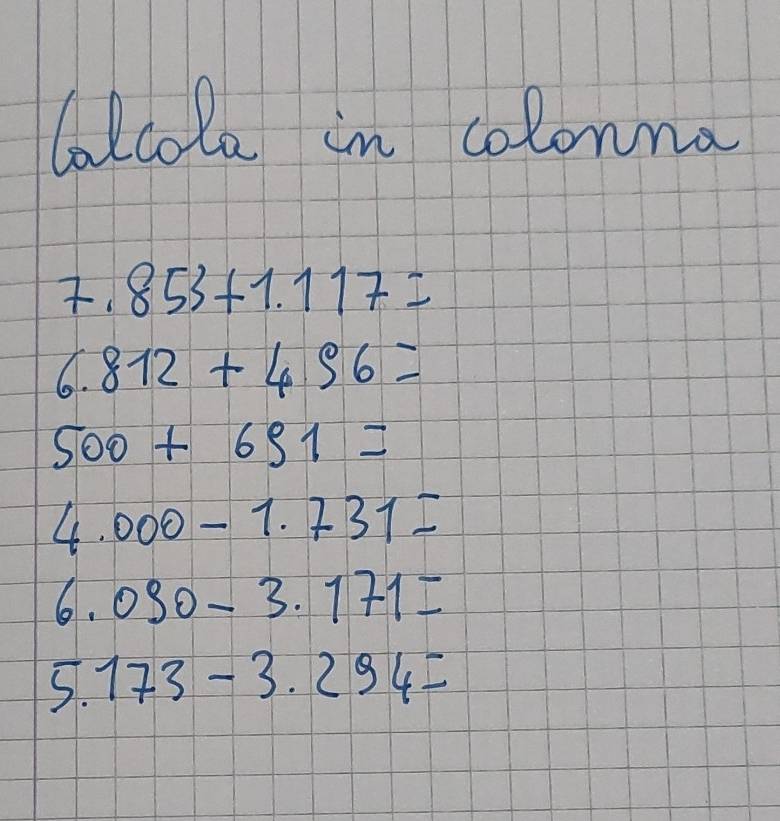 Calcola in colonna
7.853+1.117=
6.812 + 496=
500 + 691 =
4.000 - 1.731=
6.090 - 3.171=
5.173 - 3.294=